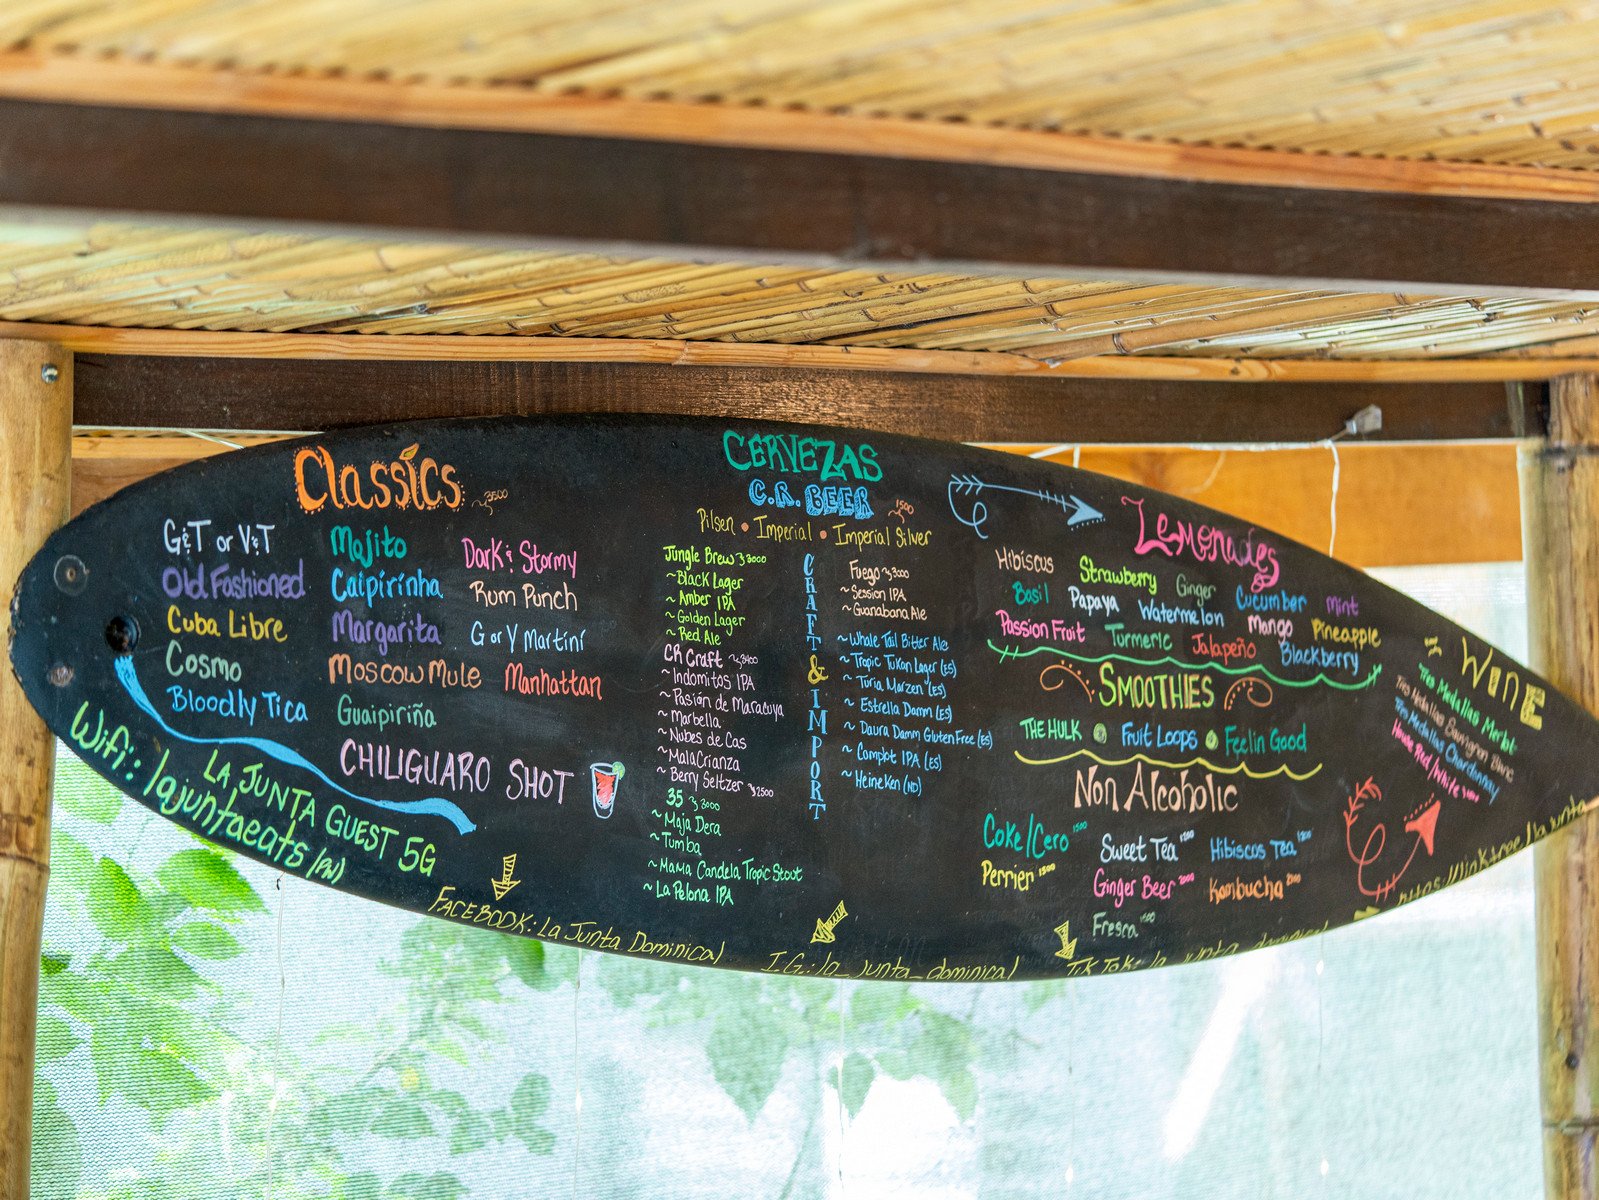 Classics ~3500
G&T or V&T
Old Fashioned
Cuba Libre
Cosmo
Bloodly Tica
Mojito
Caipirinha
Margarita
Moscow Mule
Guaipiriña
Dark & Stormy
Rum Punch
G or V Martini
Manhattan
CHILIGUARO SHOT
LA JUNTA GUEST 5G
Wifi: lajuntaeats (PW)
CERVEZAS
C.R. BEER ~1500
Pilsen • Imperial • Imperial Silver
Jungle Brew ~3000
~ Black Lager
~ Amber IPA
~ Golden Lager
~ Red Ale
CR Craft ~3400
~ Indomitos IPA
~ Pasión de Maracuya
~ Marbella
~ Nubes de Cas
~ MalaCrianza
~ Berry Seltzer ~2500
35 ~3000
~ Maja Dera
~ Tumba
~ Mama Candela Tropic Stout
~ La Pelona IPA
CRAFT & IMPORT
Fuego ~3000
~ Session IPA
~ Guanabana Ale
~ Whale Tail Bitter Ale
~ Tropic Tukan Lager (ES)
~ Turia Marzen (ES)
~ Estrella Damm (ES)
~ Daura Damm Gluten Free (ES)
~ Complot IPA (ES)
~ Heineken (ND)
Lemonades
Hibiscus Strawberry Ginger Cucumber Mint
Basil Papaya Watermelon Mango Pineapple
Passion Fruit Turmeric Jalapeño Blackberry
SMOOTHIES
THE HULK Fruit Loops Feelin Good
Non Alcoholic
Coke/Cero 1500
Perrier 1500
Sweet Tea 1200
Ginger Beer 2000
Fresca 1500
Hibiscus Tea 1200
Kombucha 2000
WINE
Tres Medallas Merlot
Tres Medallas Sauvignon Blanc
Tres Medallas Chardonnay
House Red/White
FACEBOOK: La Junta Dominical
I.G: la_junta_dominical
Tik Tok: la_junta_dominical
https://linktree/la junta